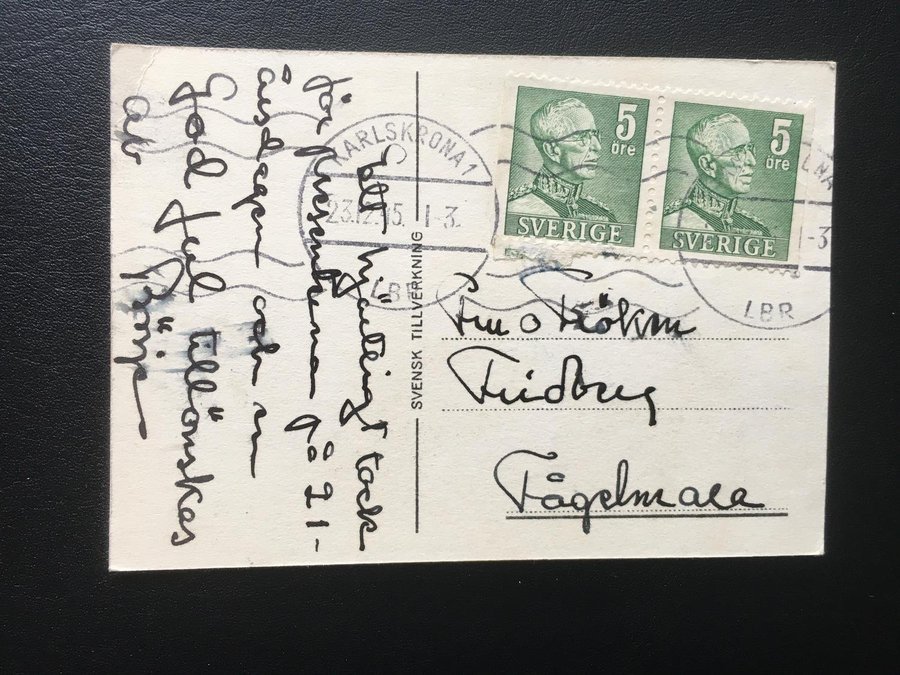 Sätt hjärtligt tack
för presenterna på 21-
årsdagen och en
God Jul tillönskas
av Börje
SVENSK TILLVERKNING
KARLSKRONA 1
23.12.45. 1-3.
LBR
5
öre
SVERIGE
5
öre
SVERIGE
LNA
1-3
LBR
Fru o Fröken
Fridberg
Fågelmara